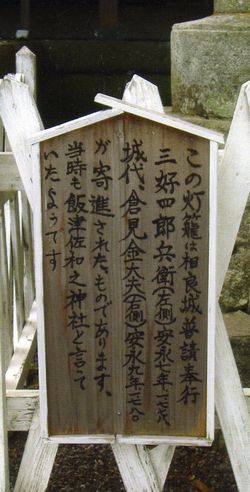 この灯籠は相良城普請奉行
三好四郎兵衛(左側)安永七年一七七八
城代、倉見金大夫(右側)安永九年一七八〇
が寄進されたものであります、
当時も飯津佐和乃神社と言って
いたようです